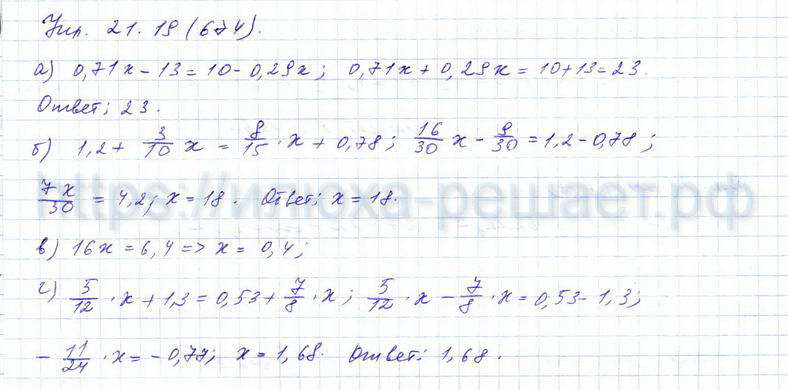 Упр. 21.19 (674).
а) 0,71x - 13 = 10 - 0,29x; 0,71x + 0,29x = 10 + 13 = 23.
Ответ: 23.
б) 1,2 + 3/10 x = 8/15 · x + 0,78; 16/30 x - 9/30 = 1,2 - 0,78;
7x/30 = 4,2; x = 18. Ответ: x = 18.
https://июха-решает.рф
в) 16x = 6,4 => x = 0,4;
г) 5/12 · x + 1,3 = 0,53 + 7/8 · x; 5/12 · x - 7/8 · x = 0,53 - 1,3;
- 11/24 · x = - 0,77; x = 1,68. Ответ: 1,68.